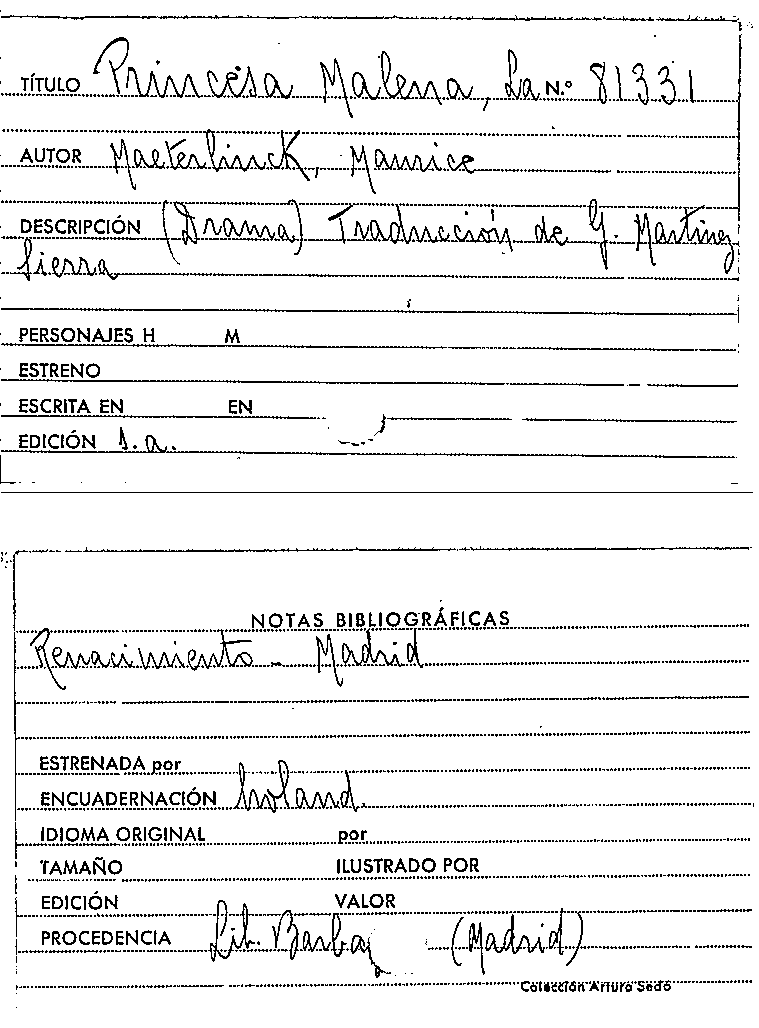 TÍTULO Princesa Malena, La N.º 81331
AUTOR Maeterlinck, Maurice
DESCRIPCIÓN (Drama) Traducción de G. Martinez
Sierra
PERSONAJES H M
ESTRENO
ESCRITA EN EN
EDICIÓN s.a.
NOTAS BIBLIOGRÁFICAS
Renacimiento - Madrid
ESTRENADA por
ENCUADERNACIÓN holand.
IDIOMA ORIGINAL por
TAMAÑO ILUSTRADO POR
EDICIÓN VALOR
PROCEDENCIA Lib. Barbaz (Madrid)
Colección Arturo Sedó